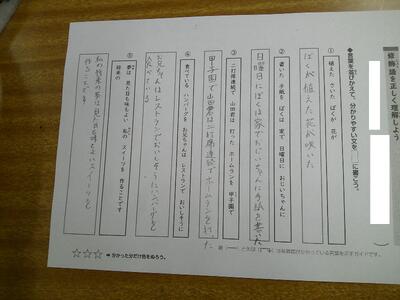 修飾語を正しく理解しよう
◆言葉を並びかえて、分かりやすい文を、□に書こう。
① 植えた さいた ぼくが 花が
ぼくが植えた花が咲いた
② 書いた 手紙を ぼくは 家で 日曜日に おじいちゃんに
日曜日にぼくは家でおじいちゃんに手紙を書いた
③ 二打席連続で 山田君は 打った ホームランを 甲子園で
甲子園で山田君は二打席連続でホームランを打った
④ 食べている ハンバーグを お兄ちゃんは レストランで おいしそうに
お兄ちゃんはレストランでおいしそうにハンバーグを
食べている
⑤ 夢は 見た目も味もよい 私の スイーツを 作ることです
将来の
私の将来の夢は見た目も味もよいスイーツを
作ることです
☆☆☆ ➡ 分かった分だけ色をぬろう。